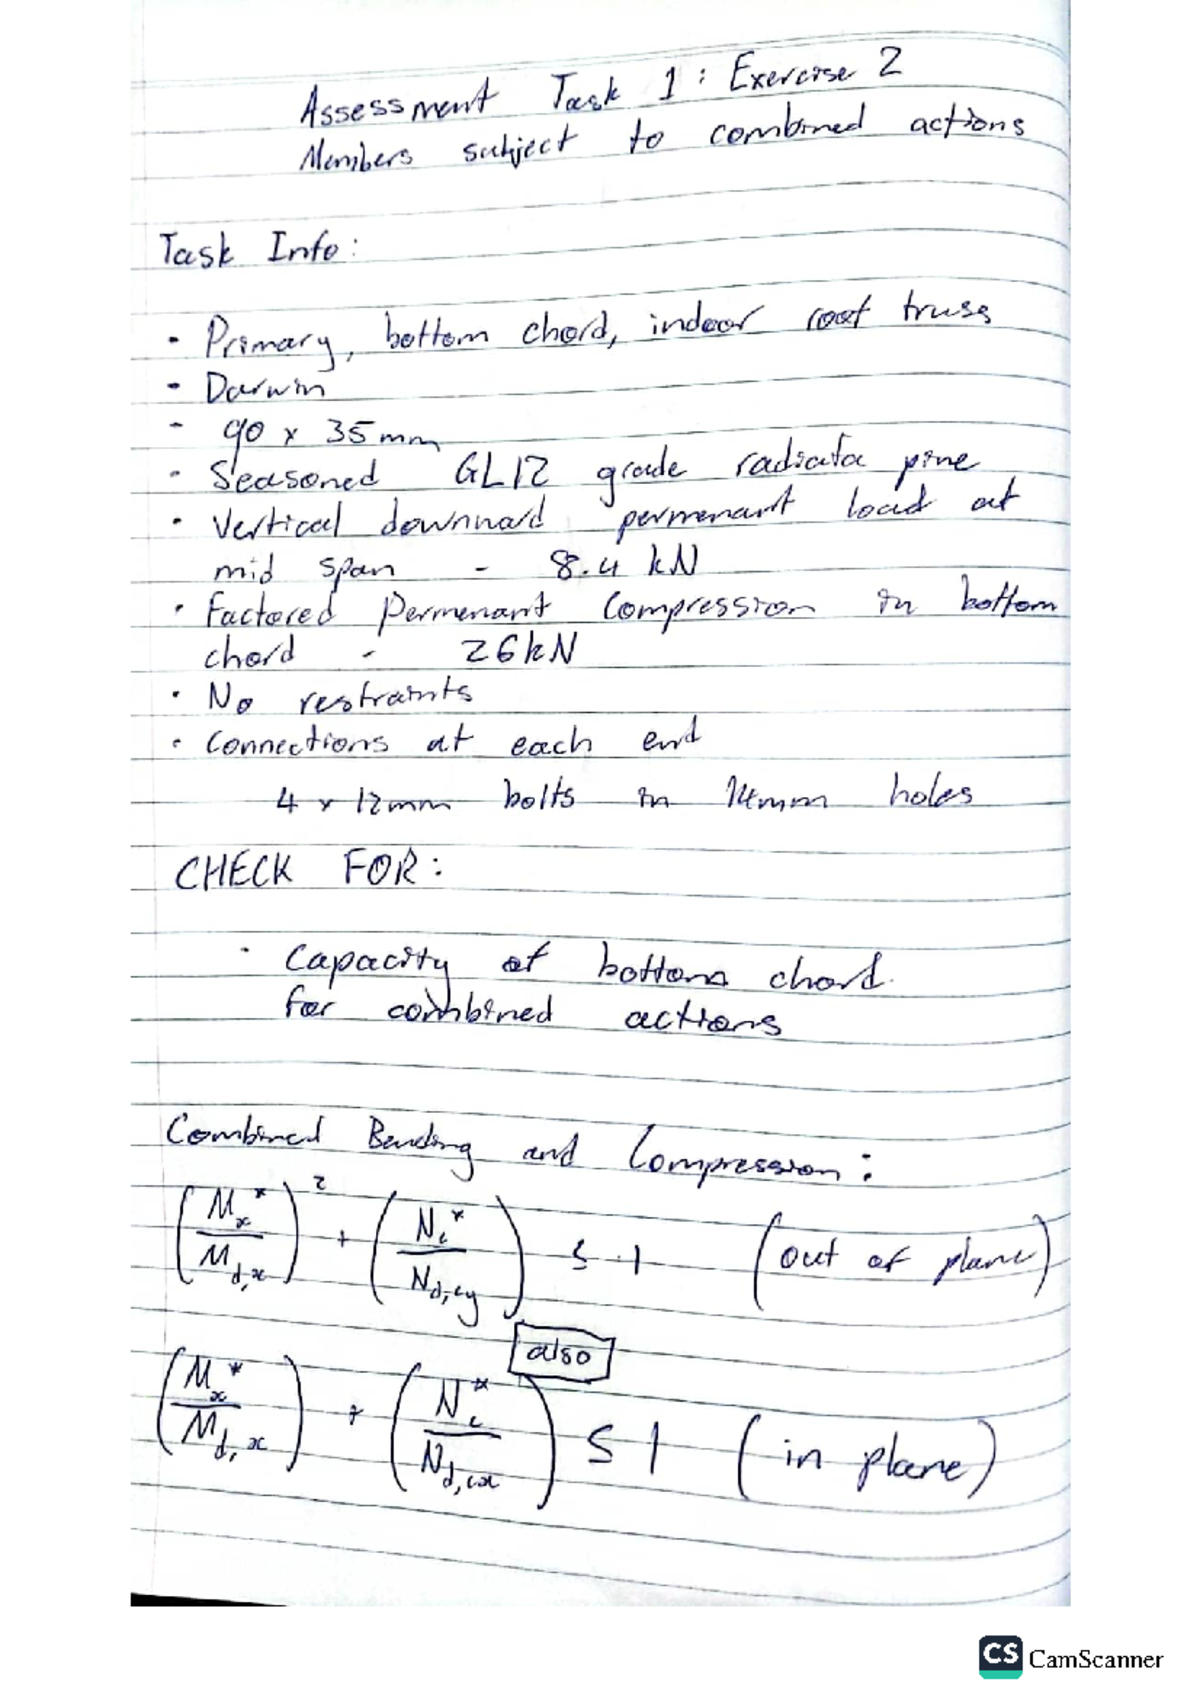 Assessment Task 1: Exercise 2
Members subject to combined actions
Task Info:
· Primary, bottom chord, indoor roof truss
- Darwin
- 90 x 35mm
· Seasoned GL12 grade radiata pine
· Vertical downward permenant load at
mid span - 8.4 kN
· Factored Permenant Compression in bottom
chord - 26kN
· No restraints
· Connections at each end
4 x 12mm bolts in 14mm holes
CHECK FOR:
· Capacity of bottom chord
for combined actions
Combined Bending and Compression:
(Mx* / Md,x)² + (Nc* / Nd,cy) ≤ 1 (out of plane)
also
(Mx* / Md,x) + (Nc* / Nd,cx) ≤ 1 (in plane)
CS CamScanner